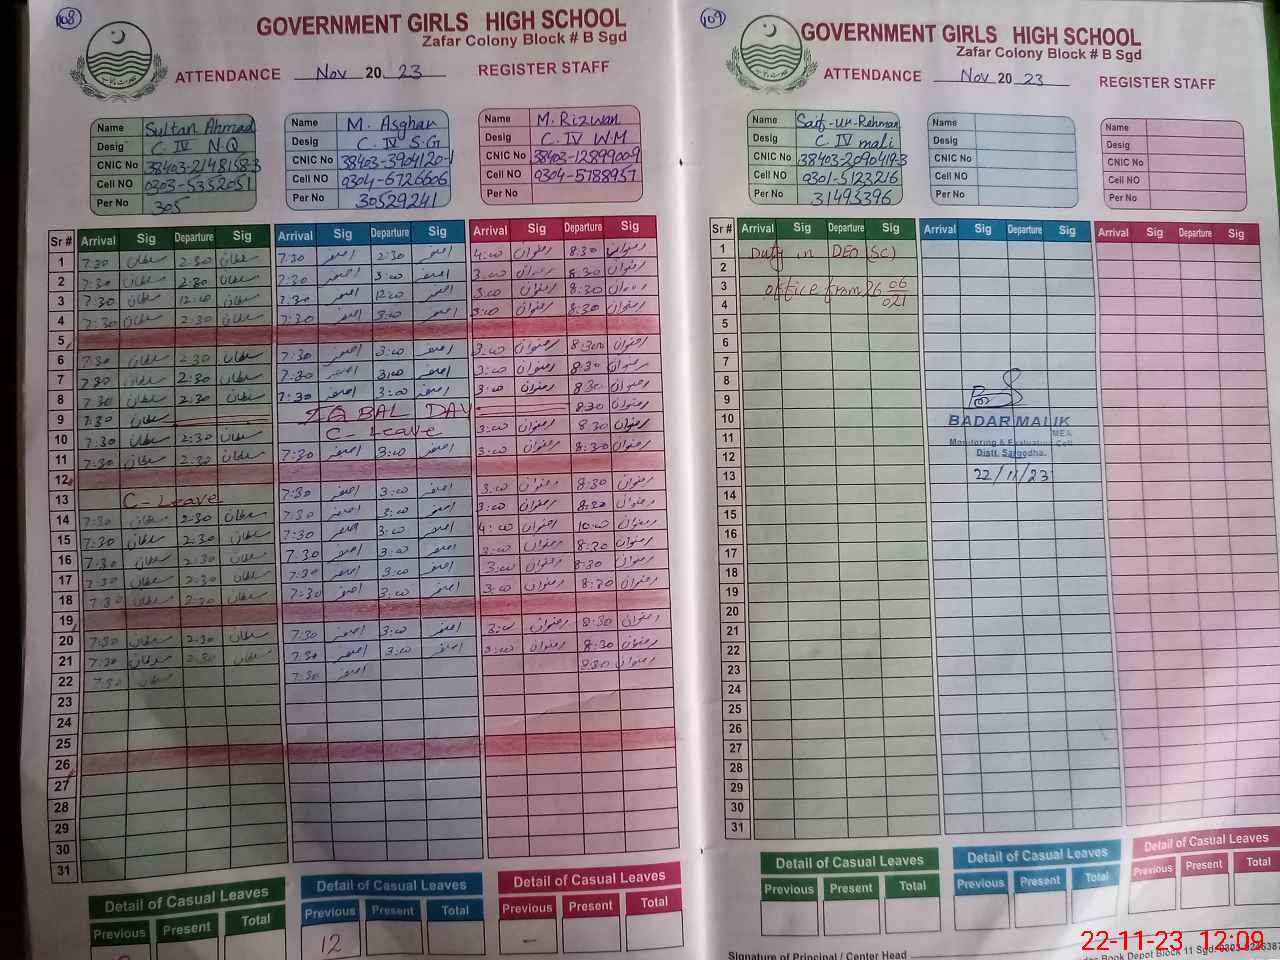 108
GOVERNMENT GIRLS HIGH SCHOOL
Zafar Colony Block # B Sgd
ATTENDANCE Nov 2023 REGISTER STAFF
Name Sultan Ahmad
Desig C. IV N.Q
CNIC No 38403-2148158-3
Cell NO 0303-5352051
Per No 305
Name M. Asghar
Desig C. IV S.G
CNIC No 38403-3904120-1
Cell NO 0304-6726606
Per No 30529241
Name M. Rizwan
Desig C. IV W.M
CNIC No 38403-1289900-9
Cell NO 0304-5788957
Per No
Sr # Arrival Sig Departure Sig Arrival Sig Departure Sig Arrival Sig Departure Sig
1 7:30 سلطان 2:30 سلطان 7:30 اصغر 2:30 اصغر 4:00 رضوان 8:30 رضوان
2 7:30 سلطان 2:30 سلطان 7:30 اصغر 3:00 اصغر 3:00 رضوان 8:30 رضوان
3 7:30 سلطان 12:00 سلطان 7:30 اصغر 12:00 اصغر 3:00 رضوان 8:30 رضوان
4 7:30 سلطان 2:30 سلطان 7:30 اصغر 3:00 اصغر 3:00 رضوان 8:30 رضوان
5
6 7:30 سلطان 2:30 سلطان 7:30 اصغر 3:00 اصغر 3:00 رضوان 8:30 رضوان
7 7:30 سلطان 2:30 سلطان 7:30 اصغر 3:00 اصغر 3:00 رضوان 8:30 رضوان
8 7:30 سلطان 2:30 سلطان 7:30 اصغر 3:00 اصغر 3:00 رضوان 8:30 رضوان
9 7:30 سلطان IQBAL DAY 8:30 رضوان
10 7:30 سلطان 2:30 سلطان C-Leave 3:00 رضوان 8:30 رضوان
11 7:30 سلطان 2:30 سلطان 7:30 اصغر 3:00 اصغر 3:00 رضوان 8:30 رضوان
12
13 C-Leave 7:30 اصغر 3:00 اصغر 3:00 رضوان 8:30 رضوان
14 7:30 سلطان 2:30 سلطان 7:30 اصغر 3:00 اصغر 3:00 رضوان 8:30 رضوان
15 7:30 سلطان 2:30 سلطان 7:30 اصغر 3:00 اصغر 4:00 رضوان 10:00 رضوان
16 7:30 سلطان 2:30 سلطان 7:30 اصغر 3:00 اصغر 3:00 رضوان 8:30 رضوان
17 7:30 سلطان 2:30 سلطان 7:30 اصغر 3:00 اصغر 3:00 رضوان 8:30 رضوان
18 7:30 سلطان 2:30 سلطان 7:30 اصغر 3:00 اصغر 3:00 رضوان 8:30 رضوان
19
20 7:30 سلطان 2:30 سلطان 7:30 اصغر 3:00 اصغر 3:00 رضوان 8:30 رضوان
21 7:30 سلطان 2:30 سلطان 7:30 اصغر 3:00 اصغر 3:00 رضوان 8:30 رضوان
22 7:30 سلطان 7:30 اصغر 8:30 رضوان
23
24
25
26
27
28
29
30
31
Detail of Casual Leaves Detail of Casual Leaves Detail of Casual Leaves
Previous Present Total Previous Present Total Previous Present Total
12 -
109
GOVERNMENT GIRLS HIGH SCHOOL
Zafar Colony Block # B Sgd
ATTENDANCE Nov 2023 REGISTER STAFF
Name Saif-ur-Rehman
Desig C. IV mali
CNIC No 38403-2090419-3
Cell NO 0301-5123216
Per No 31495396
Name
Desig
CNIC No
Cell NO
Per No
Name
Desig
CNIC No
Cell NO
Per No
Sr # Arrival Sig Departure Sig Arrival Sig Departure Sig Arrival Sig Departure Sig
1 Duty in DEO (SC)
2
3 office from 26 06
4 021
5
6
7
8
9
10 BADAR MALIK
11 MEA
Monitoring & Evaluation Cell
12 Distt. Sargodha.
13 22/11/23
14
15
16
17
18
19
20
21
22
23
24
25
26
27
28
29
30
31
Detail of Casual Leaves Detail of Casual Leaves Detail of Casual Leaves
Previous Present Total Previous Present Total Previous Present Total
Signature of Principal / Center Head
Book Depot Block 11 Sgd.
22-11-23 12:09